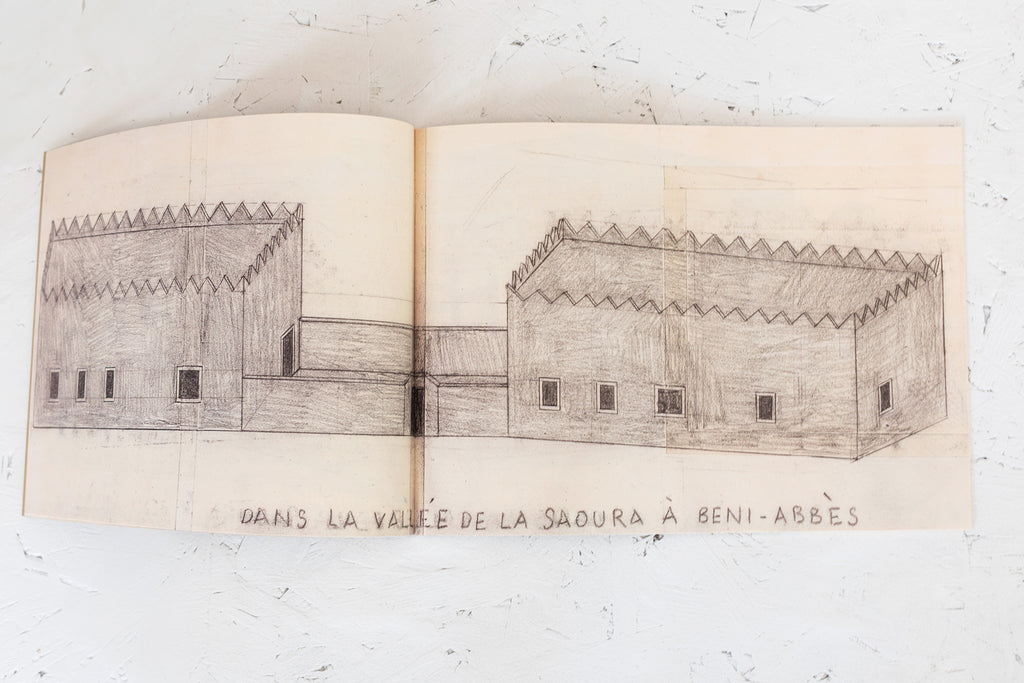 DANS LA VALLÉE DE LA SAOURA À BENI-ABBÈS